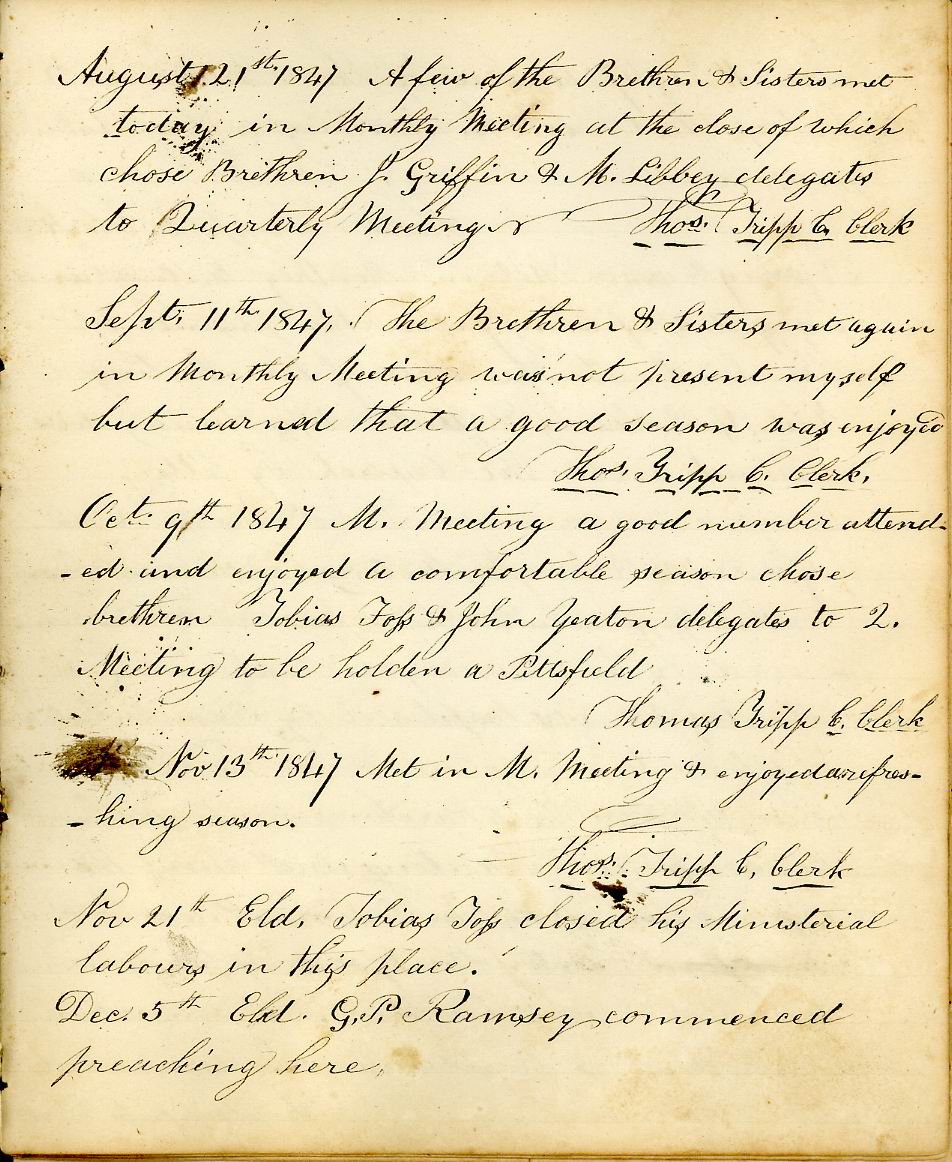 August 21st 1847 A few of the Brethren & Sisters met
today in Monthly Meeting at the close of which
chose Brethren J. Griffin & M. Libbey delegates
to Quarterly Meeting Thos. Tripp C. Clerk
Sept. 11th 1847. The Brethren & Sisters met again
in Monthly Meeting was not present myself
but learned that a good season was enjoyed
Thos. Tripp C. Clerk.
Oct. 9th 1847 M. Meeting a good number attend-
-ed and enjoyed a comfortable season chose
brethren Tobias Foss & John Yeaton delegates to Q.
Meeting to be holden a Pittsfield
Thomas Tripp C. Clerk
Nov 13th 1847 Met in M. Meeting & enjoyed a refres-
-hing season.
Thos. Tripp C. Clerk
Nov 21th Eld. Tobias Foss closed his Ministerial
labours in this place.
Dec. 5th Eld. G.P. Ramsey commenced
preaching here.